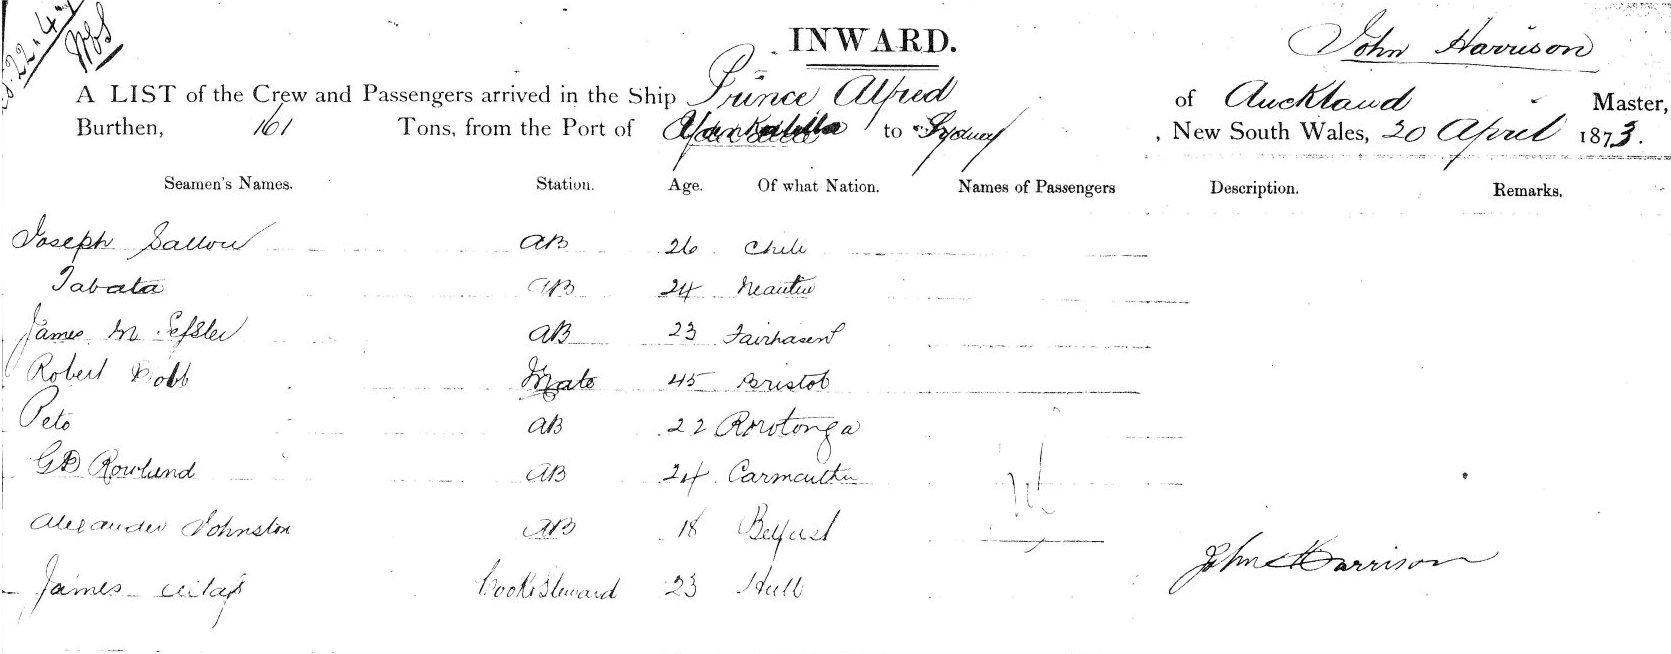 22.4
INWARD.
John Harrison
A LIST of the Crew and Passengers arrived in the Ship Prince Alfred of Auckland Master,
Burthen, 161 Tons, from the Port of Yankalilla to Sydney, New South Wales, 20 April 1873.
Seamen's Names. Station. Age. Of what Nation. Names of Passengers Description. Remarks.
Joseph AB 26 Chili
Tabata AB 24
James M AB 23 Fairhaven
Robert Bobb Mate 45 Bristol
Peto AB 22 Rorotonga
GB Rowland AB 24
Alexander Johnston AB 18 Belfast
James Cook & Steward 23 Hull
Nil
John Harrison